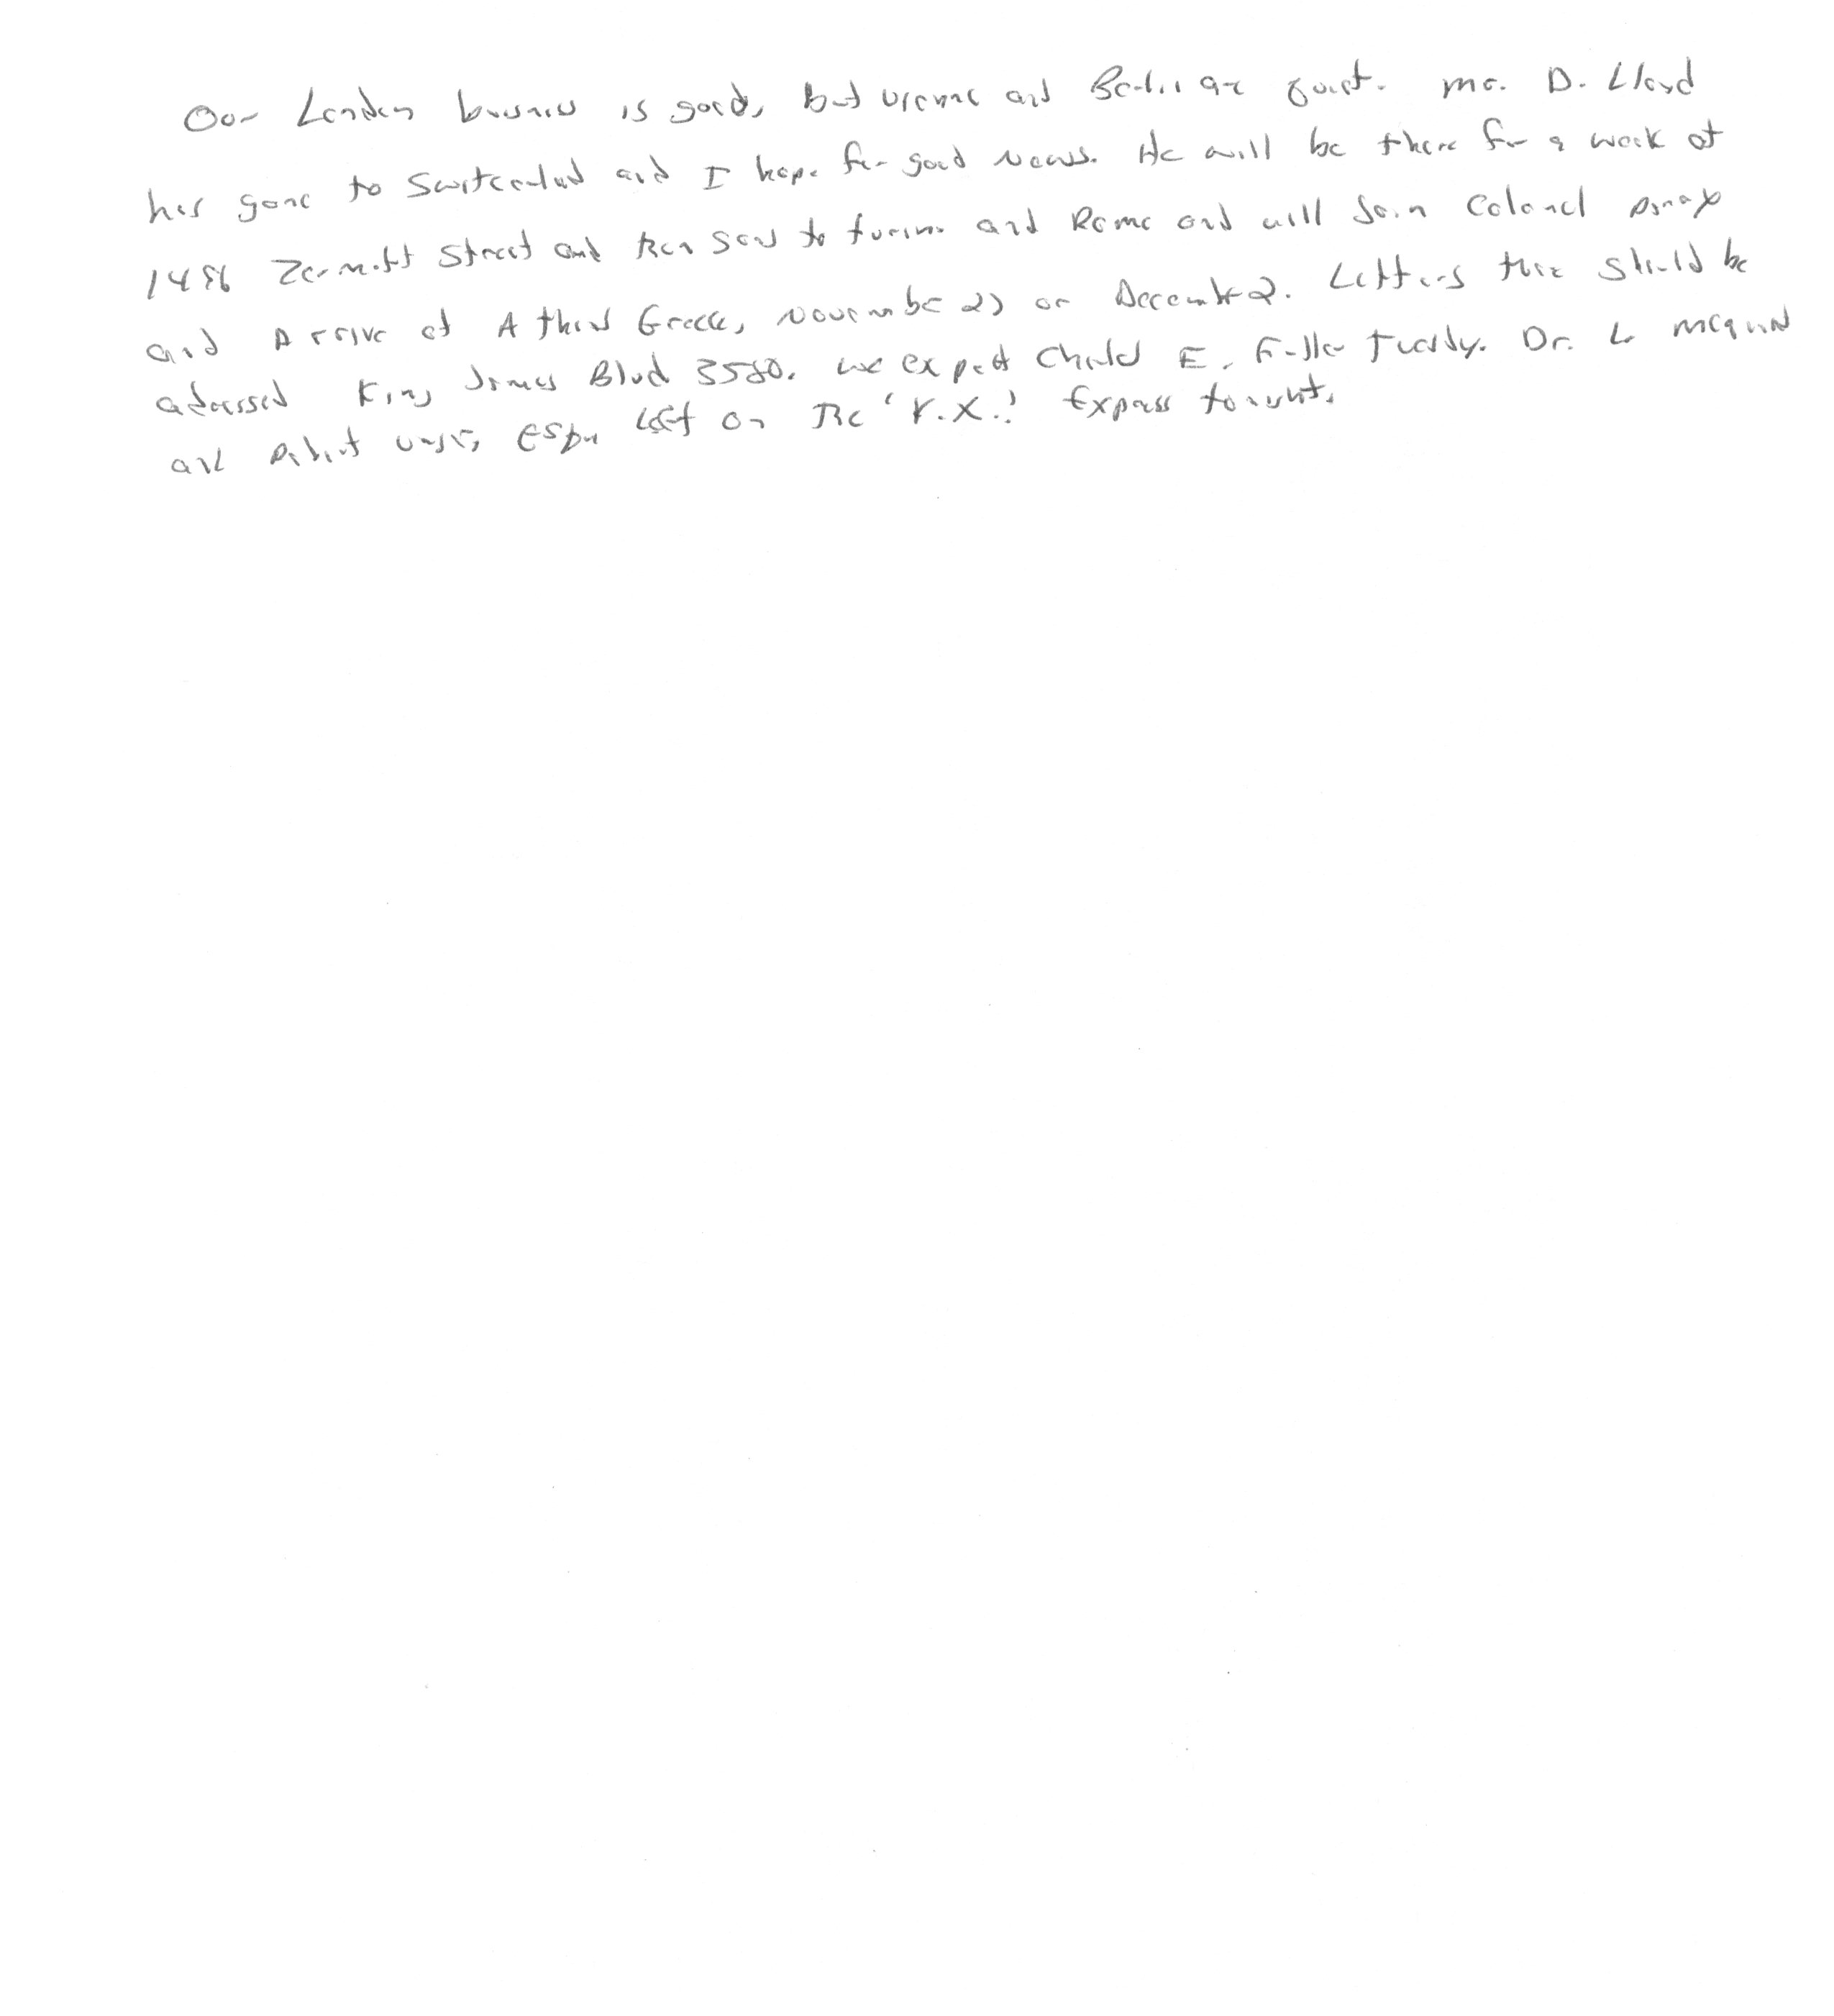 Our London business is good, but Vienna and Berlin are quiet. Mr. D. Lloyd
has gone to Switzerland and I hope for good news. He will be there for a week at
1496 Zermott Street and then goes to Turin and Rome and will join Colonel
and Arrive at Athens Greece, November 27 or December 2. Letters there should be
adressed King James Blvd 3580. We expect Charles E. Fuller Tuesday. Dr. L McQuaid
and Robert Unger, Esqr left on the 'Y.X.' Express tonight.